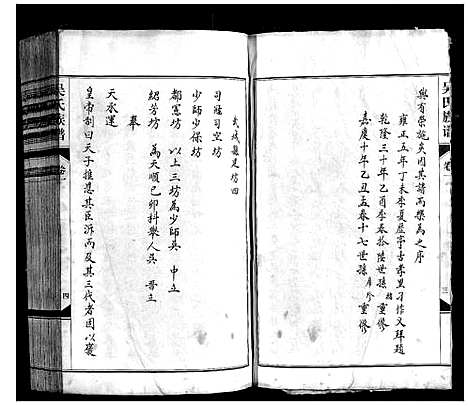 興有榮施矣因其請而樂為之序
雍正五年丁未季夏歷亭古孝里刁作文拜題
乾隆三十年乙酉季春拾陸世孫 重修
嘉慶十年乙丑孟春十七世孫 重修
吳氏族譜
卷一
三
武城龍足坊四
司寇司空坊
少師少保坊
都憲坊 以上三坊為少師吳 中立
紹芳坊 為天順己卯科舉人吳 晋立
奉
天承運
皇帝制曰天子推恩其臣泝而及其三代者因以褒
吳氏族譜
卷一
四